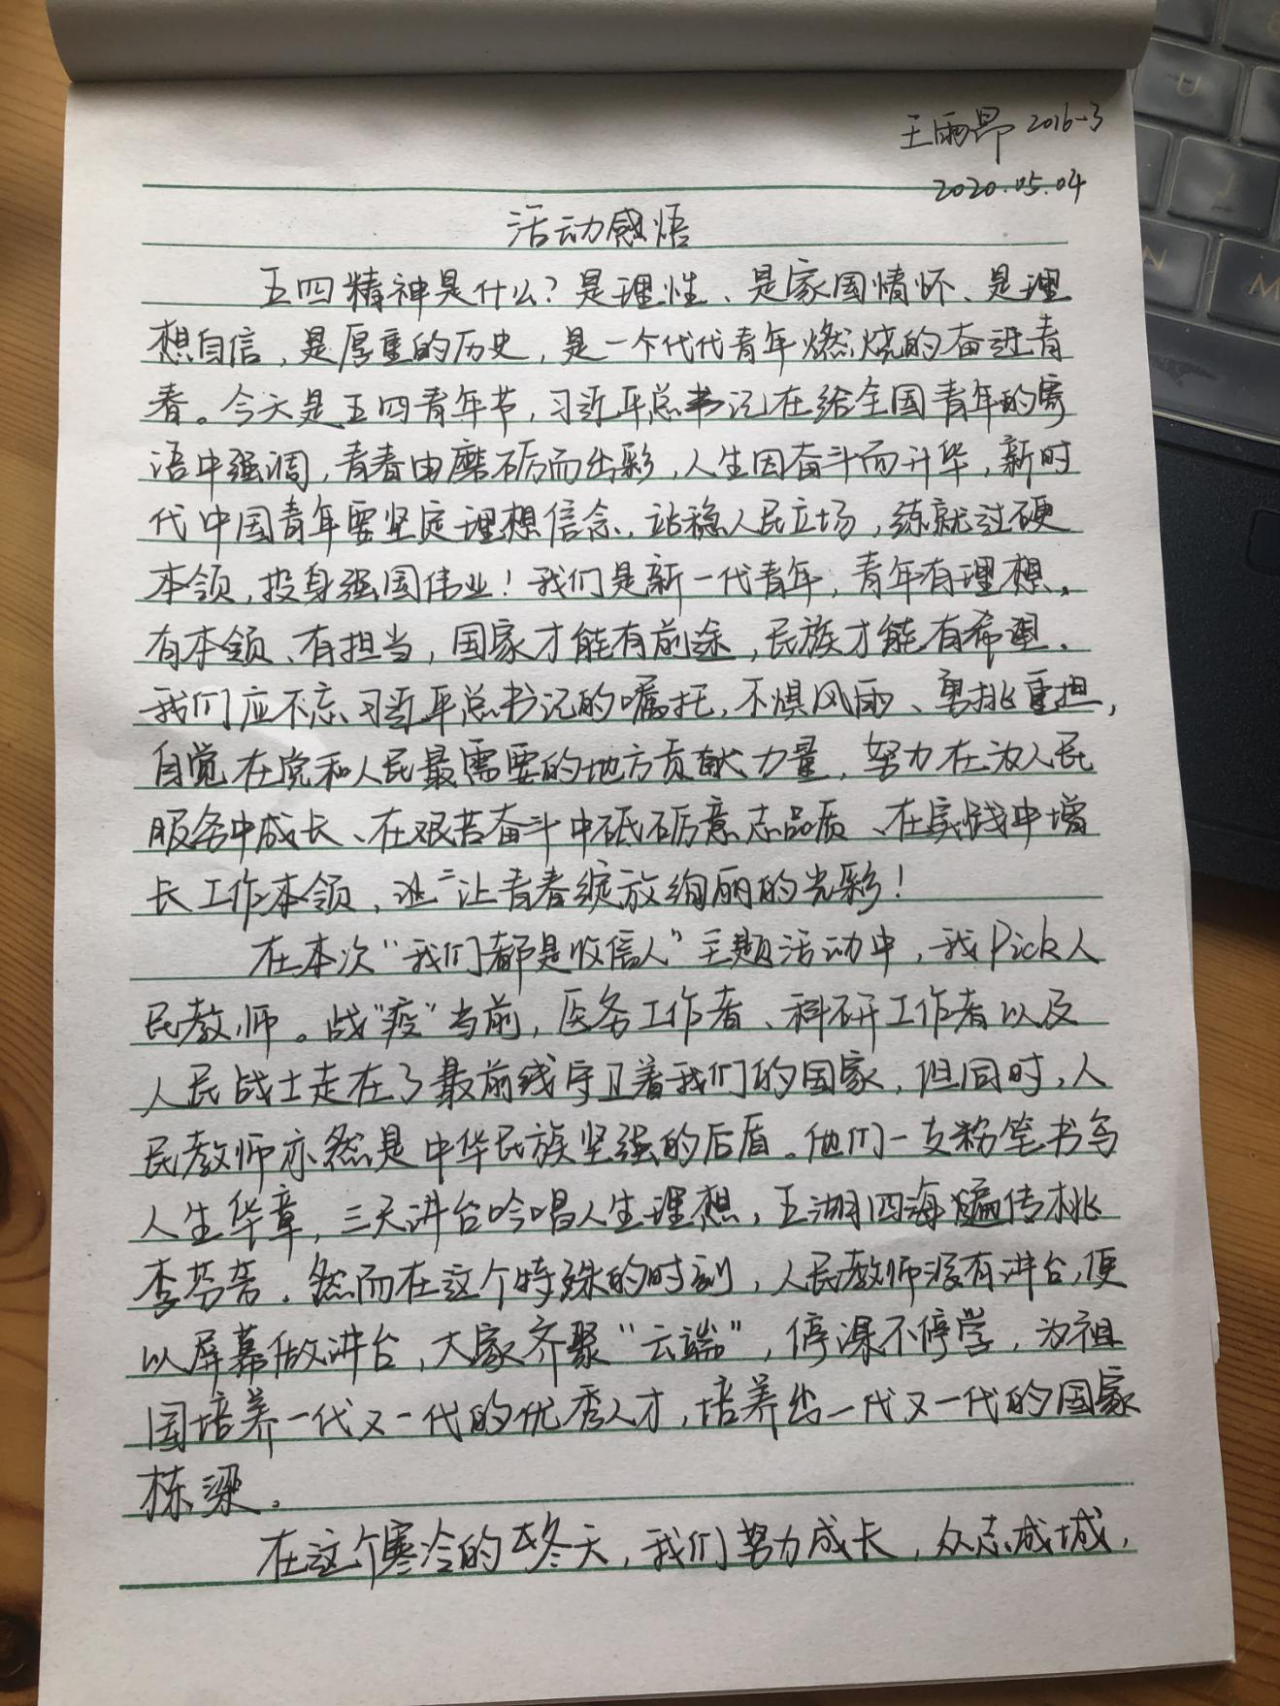 王雨昂 2016-3
2020.05.04
活动感悟
五四精神是什么？是理性、是家国情怀、是理
想自信，是厚重的历史，是一个代代青年燃烧的奋进青
春。今天是五四青年节，习近平总书记在给全国青年的寄
语中强调，青春由磨砺而出彩，人生因奋斗而升华，新时
代中国青年要坚定理想信念，站稳人民立场，练就过硬
本领，投身强国伟业！我们是新一代青年，青年有理想，
有本领、有担当，国家才能有前途，民族才能有希望。
我们应不忘习近平总书记的嘱托，不惧风雨、勇挑重担，
自觉在党和人民最需要的地方贡献力量，努力在为人民
服务中成长、在艰苦奋斗中砥砺意志品质、在实践中增
长工作本领，让青春绽放绚丽的光彩！
在本次“我们都是收信人”主题活动中，我Pick人
民教师。战“疫”当前，医务工作者、科研工作者以及
人民战士走在了最前线守卫着我们的国家，但同时，人
民教师亦然是中华民族坚强的后盾。他们一支粉笔书写
人生华章，三尺讲台吟唱人生理想，五湖四海遍传桃
李芬芳。然而在这个特殊的时刻，人民教师没有讲台，便
以屏幕做讲台，大家齐聚“云端”，停课不停学，为祖
国培养一代又一代的优秀人才，培养出一代又一代的国家
栋梁。
在这个寒冷的冬天，我们努力成长，众志成城，